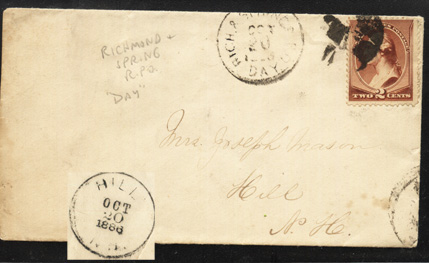 RICHMOND +
SPRING
R.P.O.
"DAY"
RICH. &
OCT
20
DAY
TWO 2 CENTS
Mrs. Joseph Mason
Hill
N. H.
HILL
OCT
20
1886
N.H.